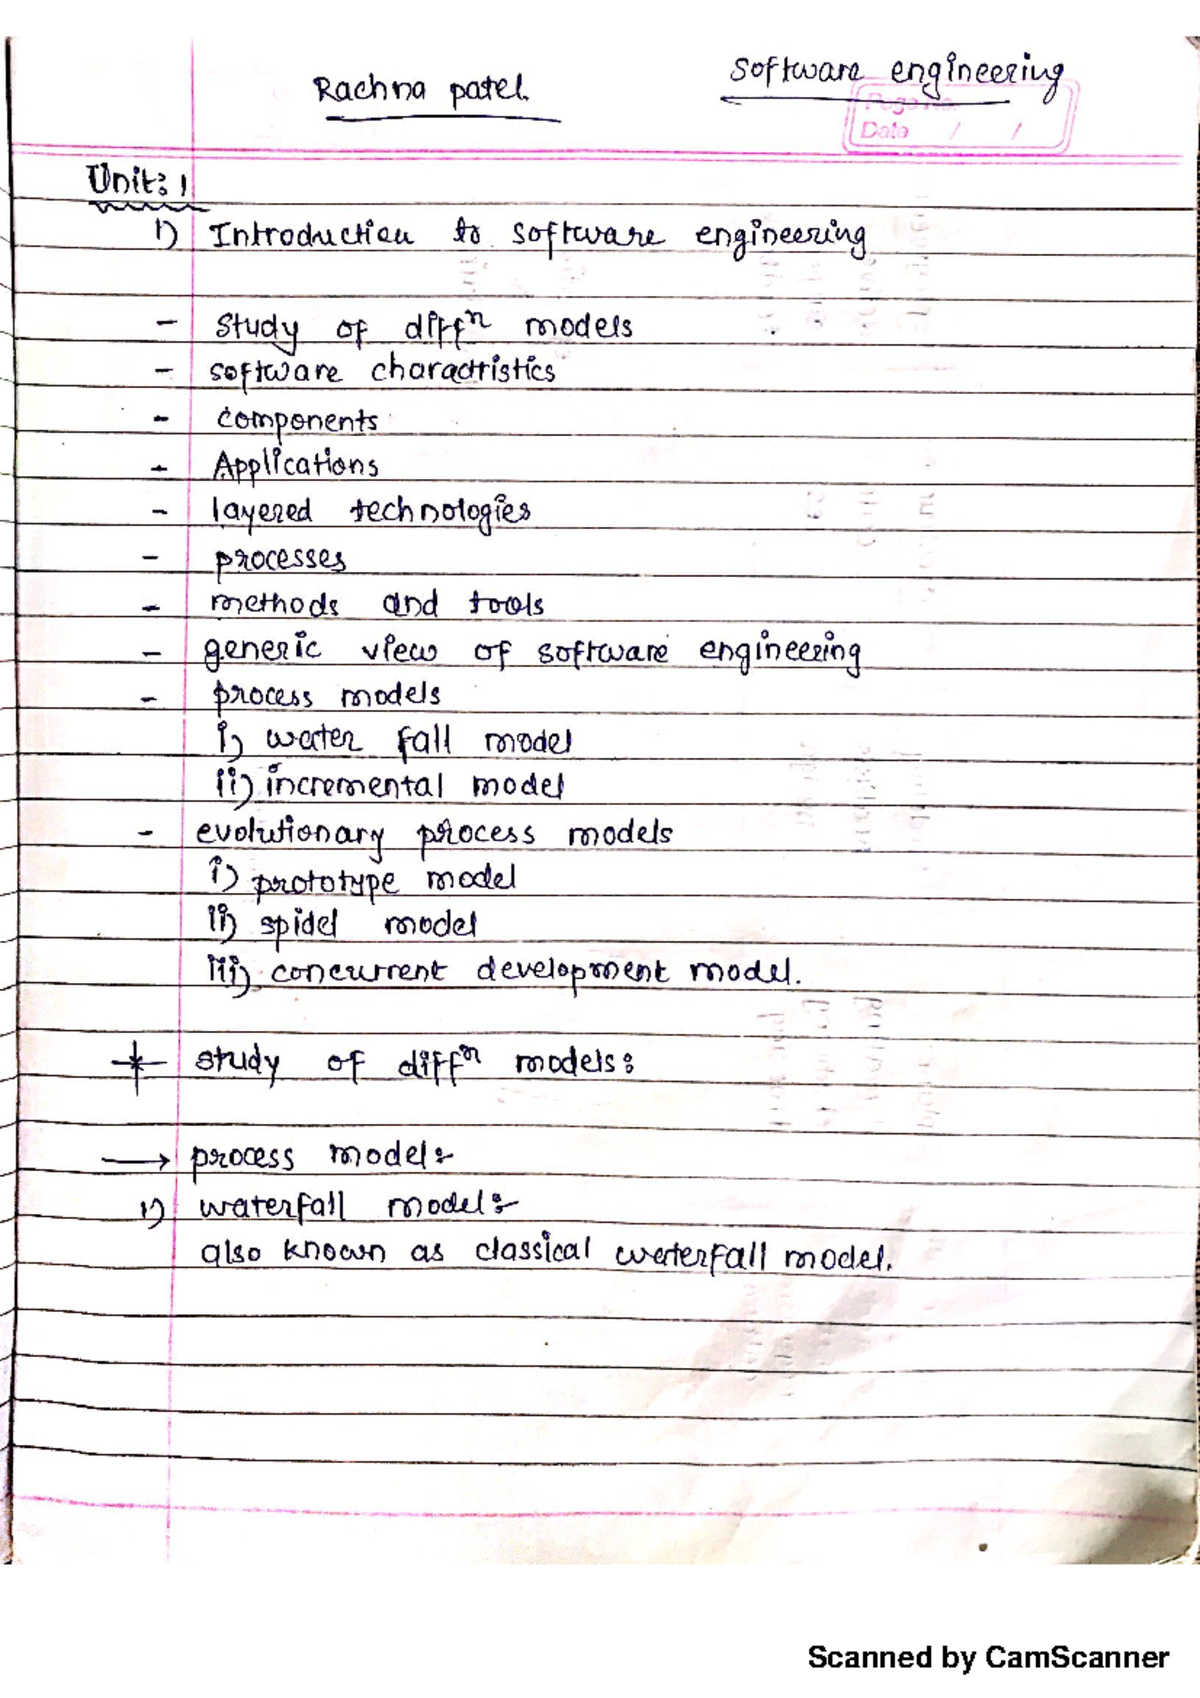 Rachna patel.
Software engineering
Page No.
Date / /
Unit: 1
1) Introduction to software engineering
- study of diffⁿ models
- software charactristics
- components
- Applications
- layered technologies
- processes
- methods and tools
- generic view of software engineering
- process models
i) water fall model
ii) incremental model
- evolutionary process models
i) prototype model
ii) spidel model
iii) concurrent development model.
* study of diffⁿ models:
→ process model:-
1) waterfall model:-
also known as classical waterfall model.
Scanned by CamScanner